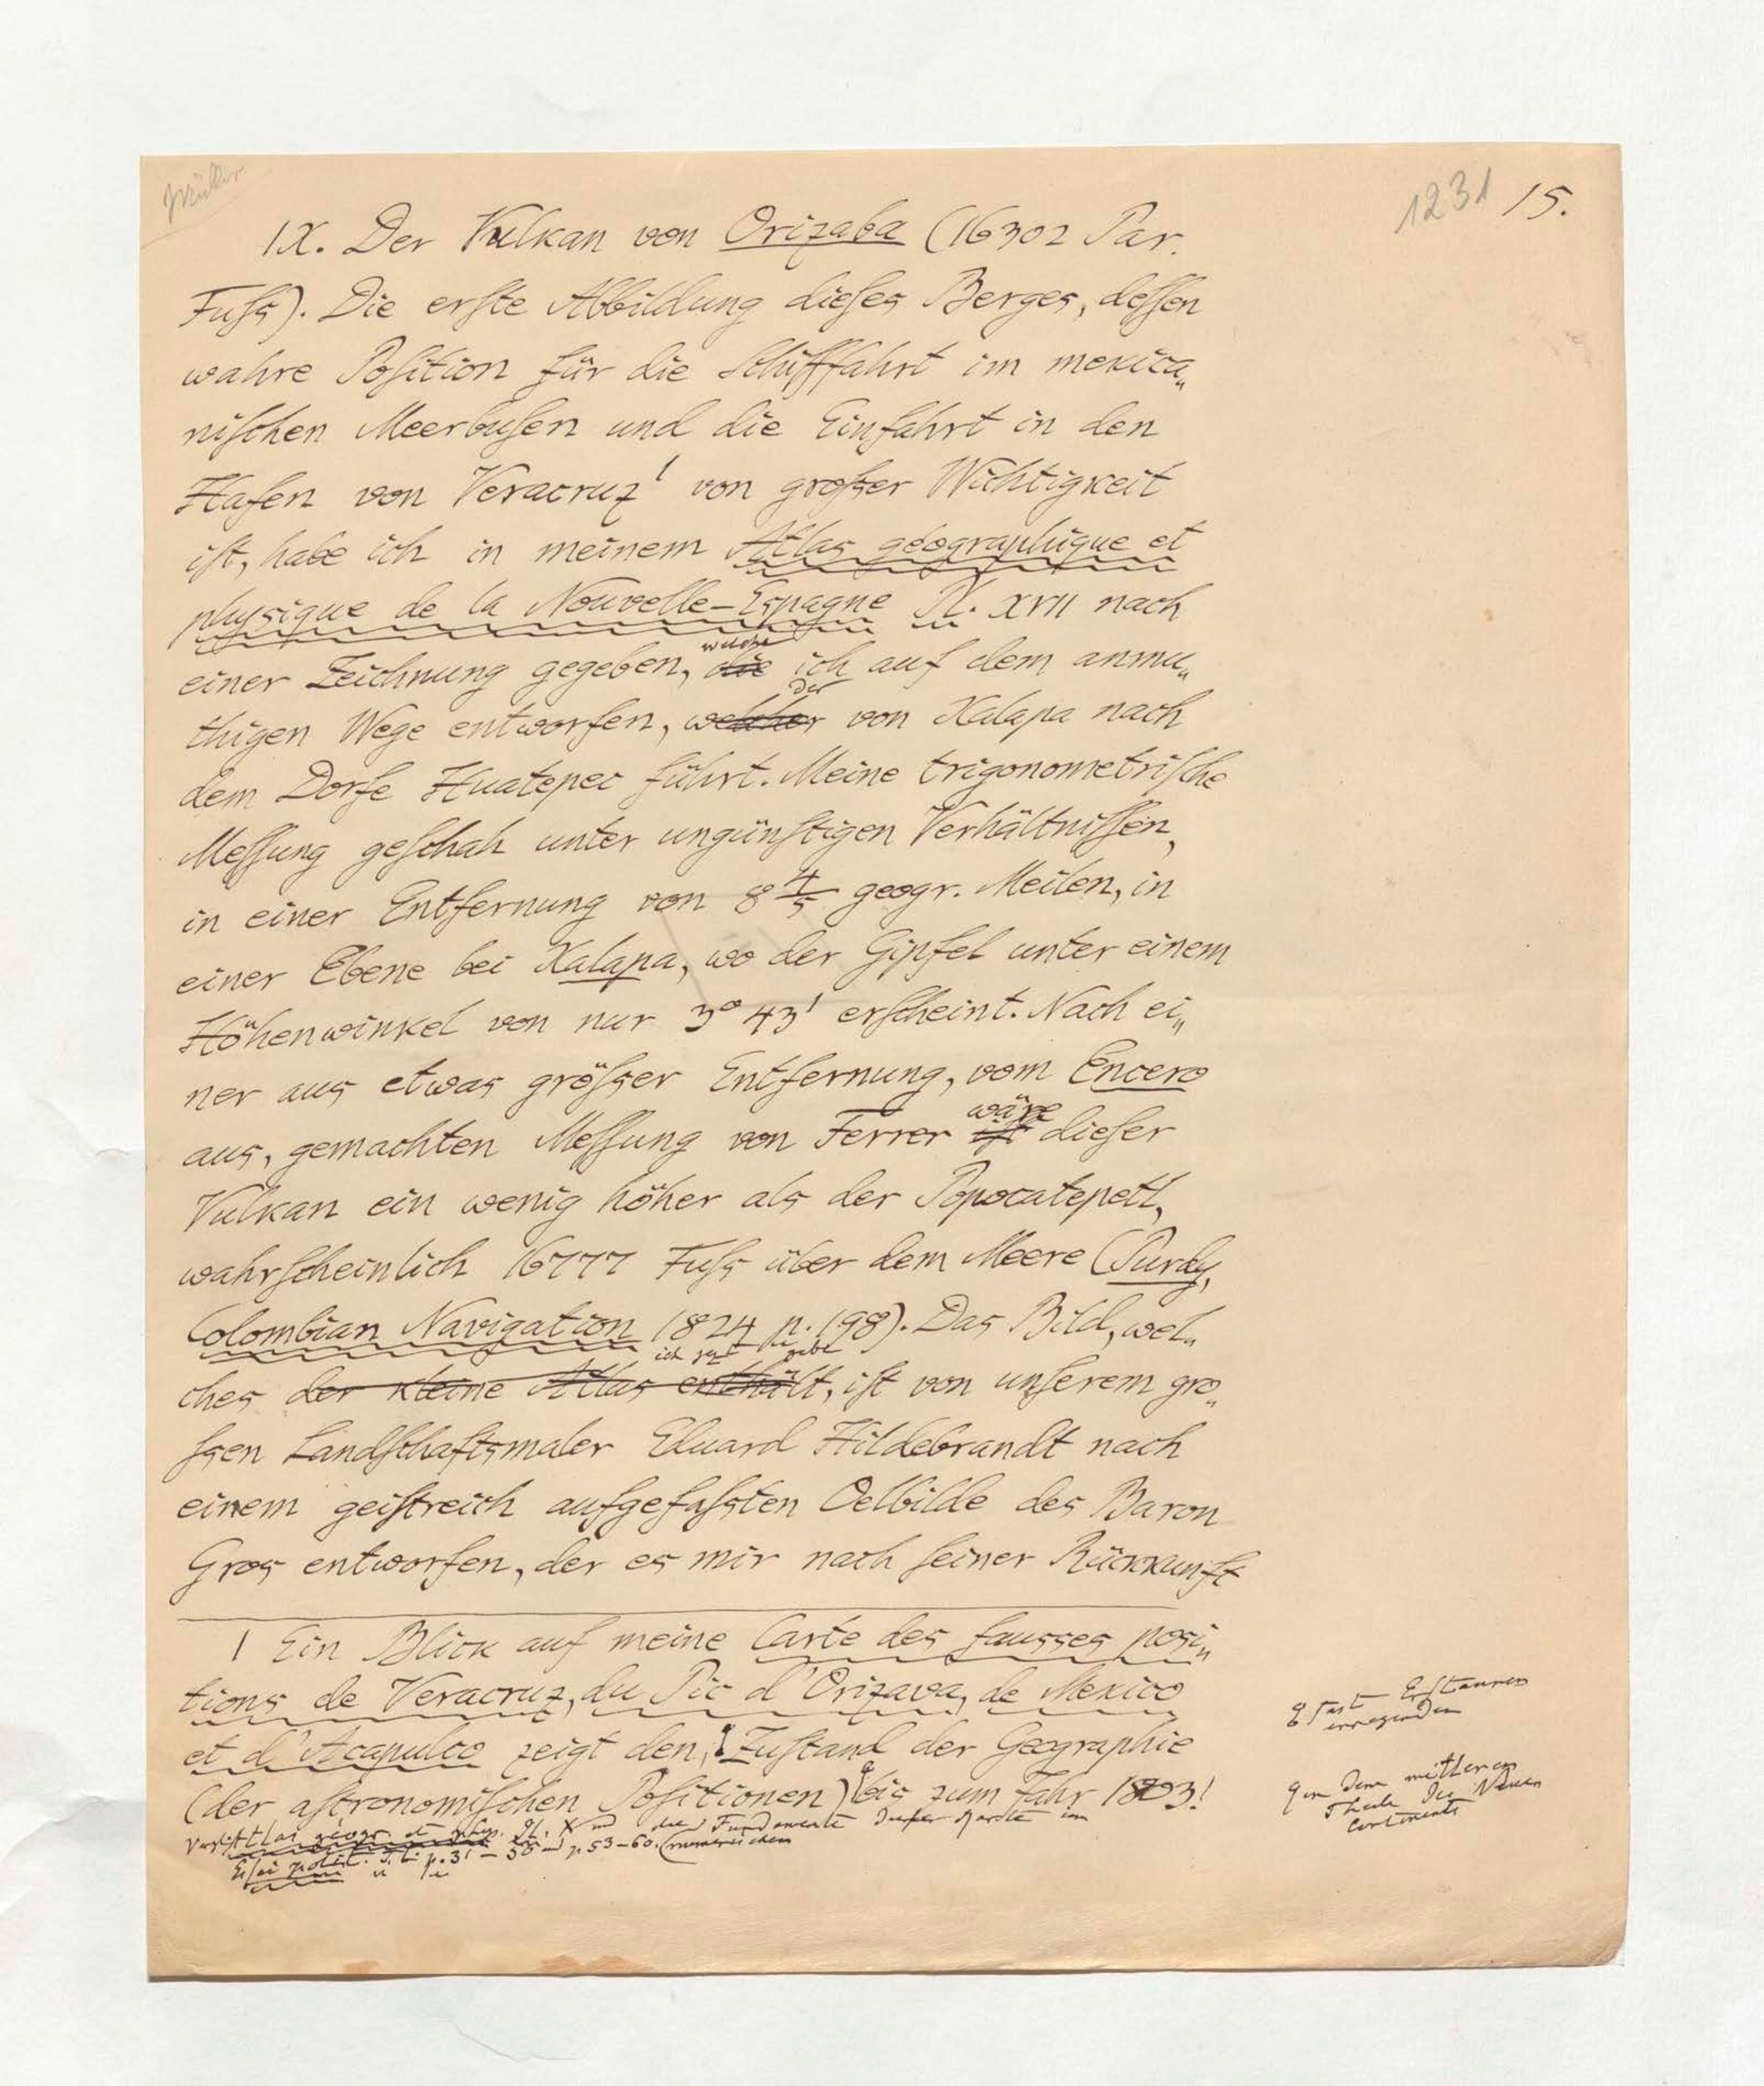 Müller
1231 15.
IX. Der Vulkan von Orizaba (16302 Par.
Fuſs). Die erſte Abbildung dieſes Berges, deſſen
wahre Poſition für die Schifffahrt im mexica„
niſchen Meerbuſen und die Einfahrt in den
Hafen von Veracruz¹ von groſser Wichtigkeit
iſt, habe ich in meinem Atlas géographique et
physique de la Nouvelle-Espagne Pl. XVII nach
welche
einer Zeichnung gegeben, die ich auf dem anmu„
der
thigen Wege entworfen, welcher von Xalapa nach
dem Dorfe Huatepec führt. Meine trigonometriſche
Meſſung geſchah unter ungünſtigen Verhältniſſen,
in einer Entfernung von 8 4/5 geogr. Meilen, in
einer Ebene bei Xalapa, wo der Gipfel unter einem
Höhenwinkel von nur 3° 43' erſcheint. Nach ei„
ner aus etwas gröſser Entfernung, vom Encero
wäre
aus, gemachten Meſſung von Ferrer iſt dieſer
Vulkan ein wenig höher als der Popocatepetl,
wahrſcheinlich 16777 Fuſs über dem Meere (Purdy,
Colombian Navigation 1824 p. 198). Das Bild, wel„
ich gebe
ches der kleine Atlas enthält, iſt von unſerem gro„
ſsen Landſchaftsmaler Eduard Hildebrandt nach
einem geiſtreich aufgefaſsten Oelbilde des Baron
Gros entworfen, der es mir nach ſeiner Rückkunft
1 Ein Blick auf meine Carte des fausses posi„
tions de Veracruz, du Pic d'Orizava, de Mexico
et d'Acapulco zeigt den Zuſtand der Geographie
(der aſtronomiſchen Poſitionen) bis zum Jahr 1803!
Atlas géogr. et phys. Pl. X und die Fundamente dieſer Karte im
Eſsai polit. T. I. p. 31 – 38 und p. 53–60. (numeriſchen
faſt Erſtaunen
erregenden
in dem mittleren
Theile des Neuen
Continents